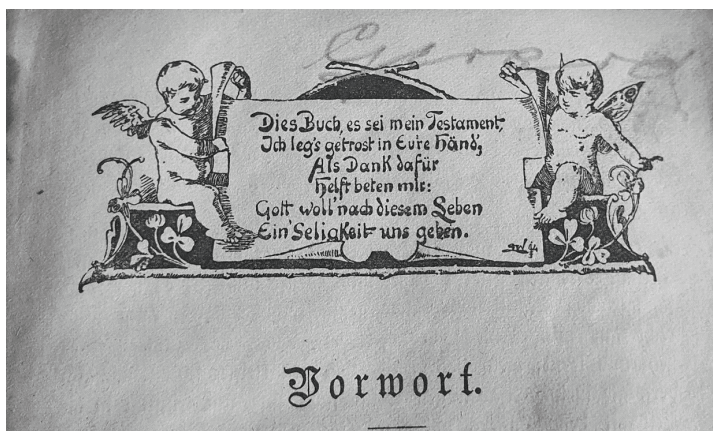 Dies Buch, es sei mein Testament,
Ich leg's getrost in Eure Händ,
Als Dank dafür
Helft beten mir:
Gott woll' nach diesem Leben
Ein' Seligkeit uns geben.
Vorwort.